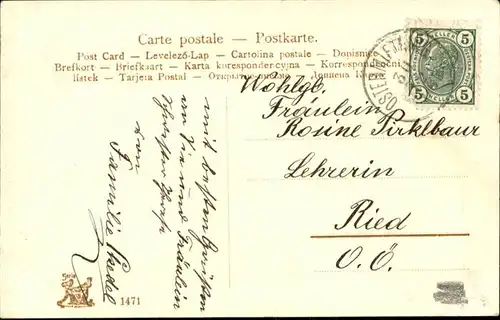 Carte postale – Postkarte.
Post Card — Levelező-Lap — Cartolina postale — Dopisnice
Brefkort — Briefkaart — Karta korespondencyjna — Korrespondenční
lístek — Tarjeta Postal — Открытое письмо —
5 5
HELLER
5 HELLER 5
Wohlgb.
Fräulein
Rosine Pirklbaur
Lehrerin
Ried
O.Ö.
mit besten Grüßen
an Sie und Fräulein
Schwester
von
Familie
1471